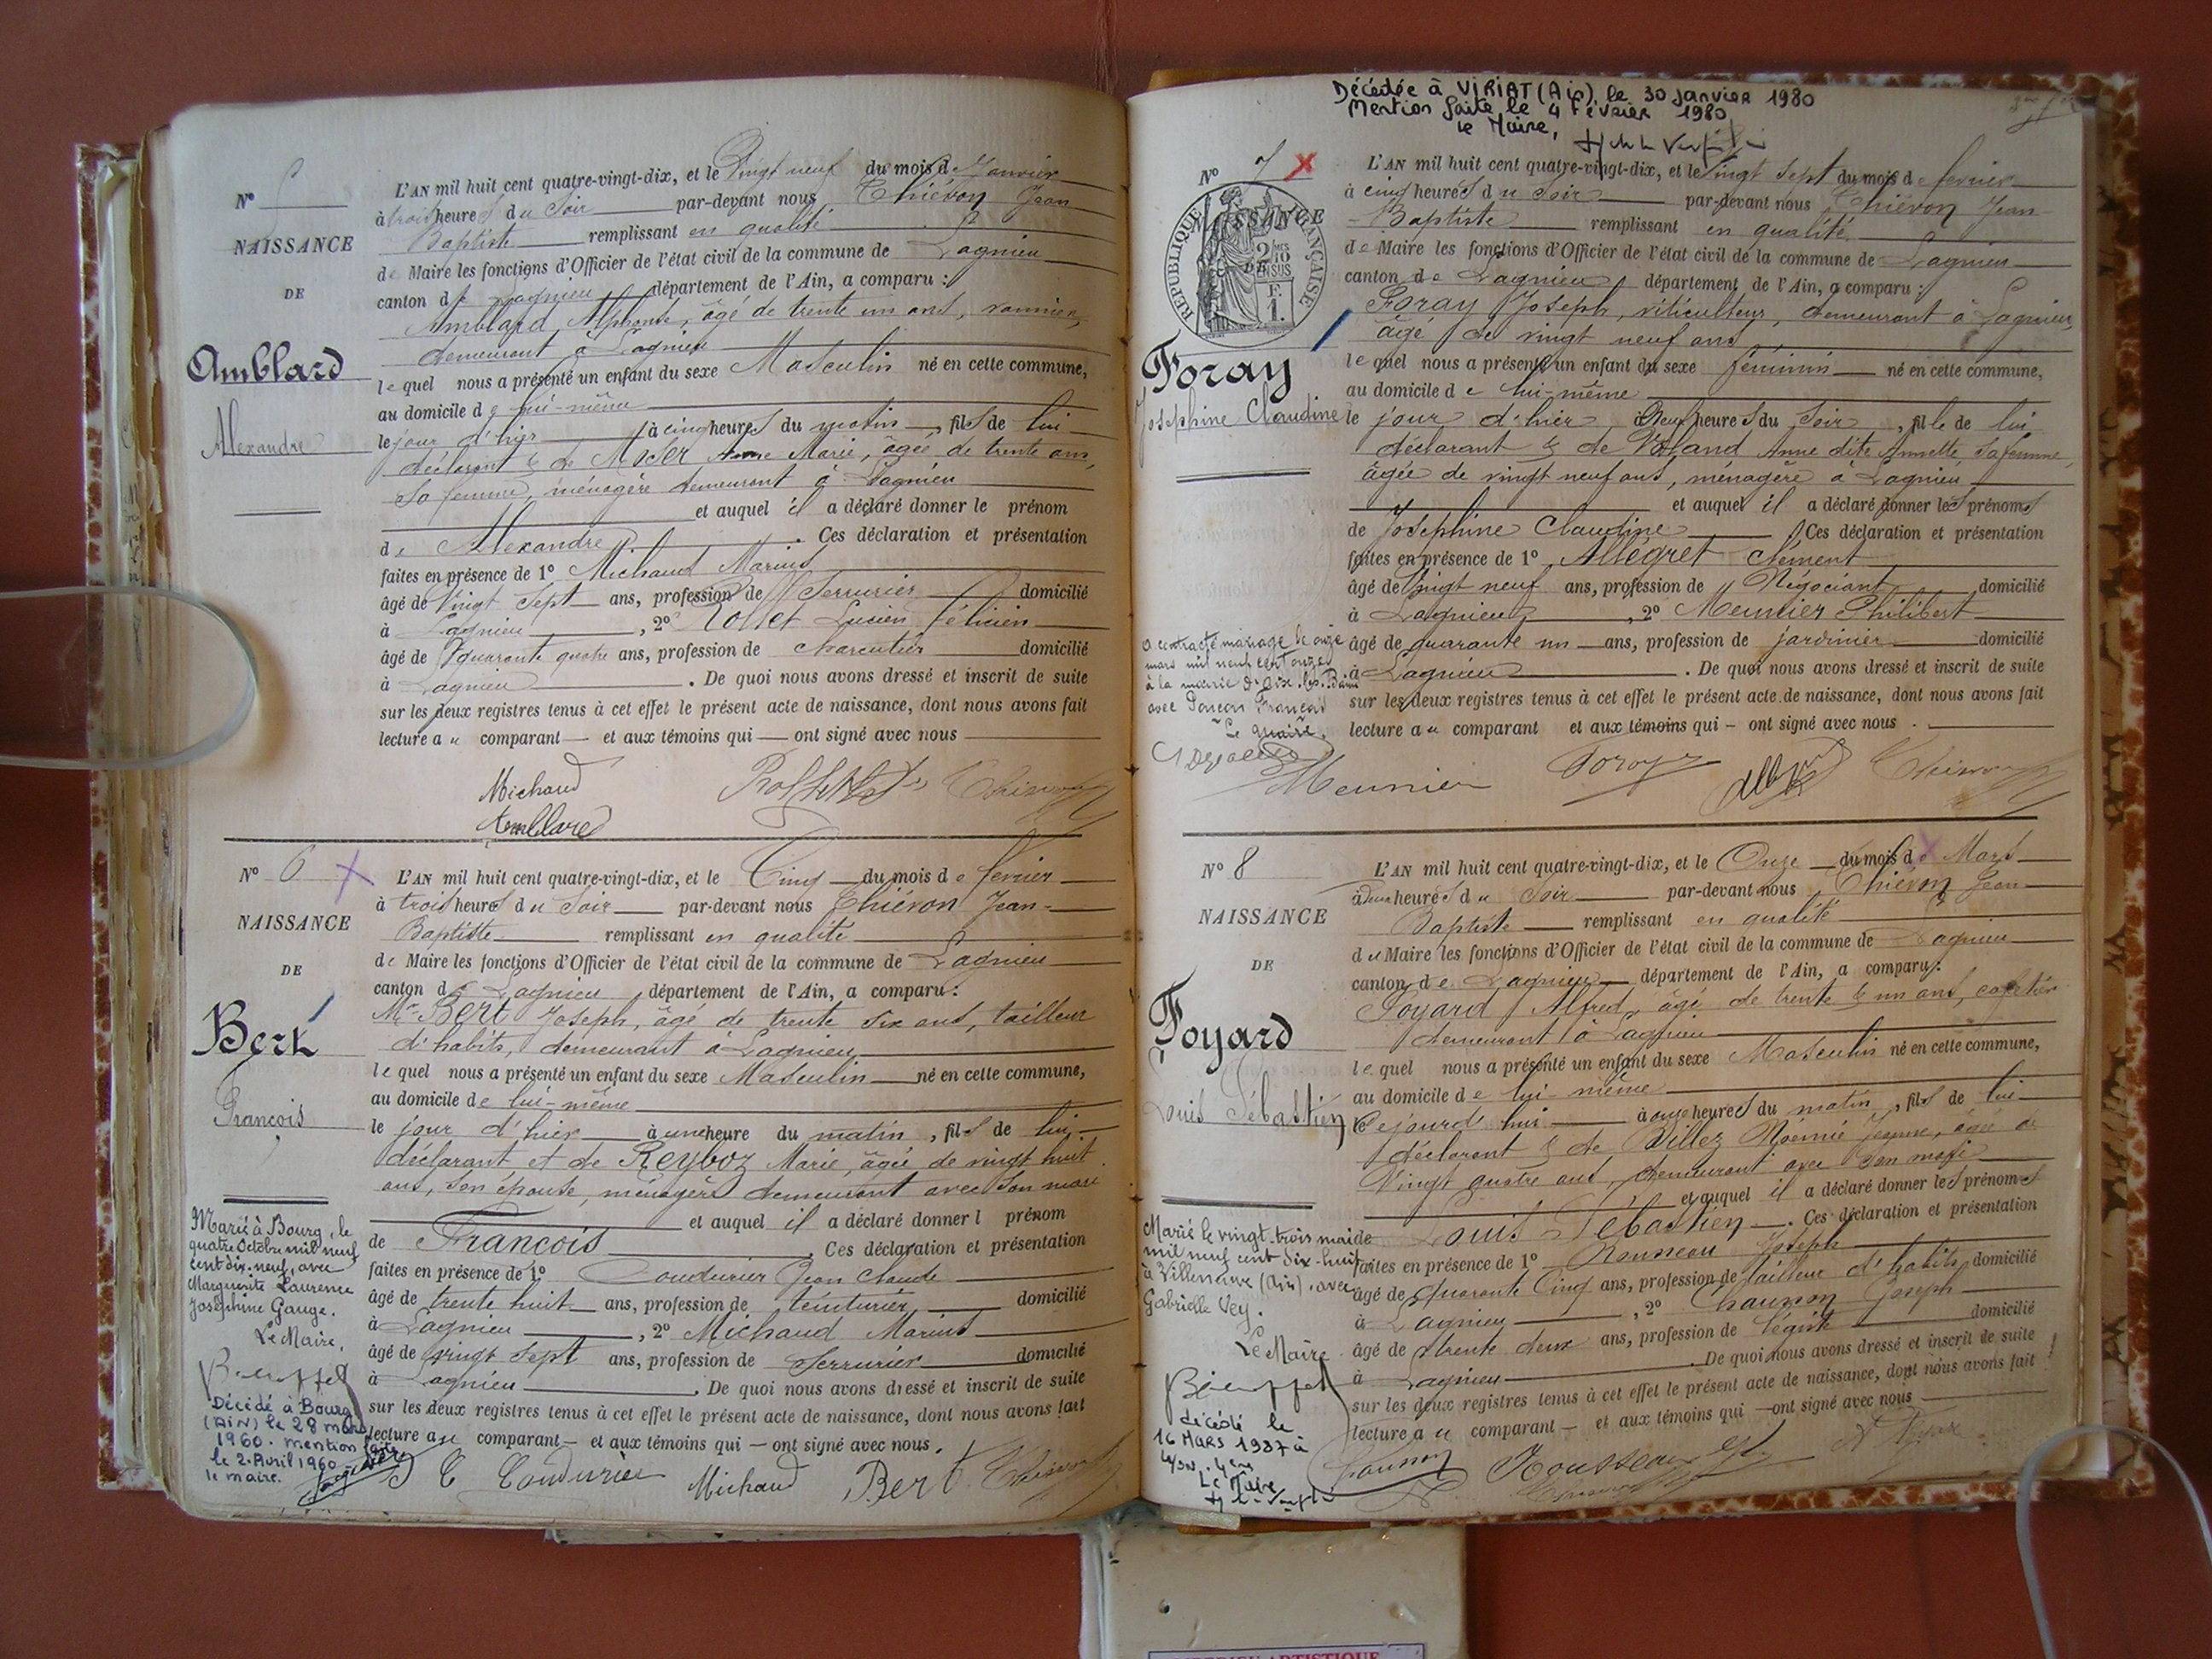 Nº 5
NAISSANCE
DE
Amblard
Alexandre
L'AN mil huit cent quatre-vingt-dix, et le Vingt neuf du mois de Janvier
à trois heures du Soir par-devant nous Thiévon Jean
Baptiste remplissant en qualité
de Maire les fonctions d'Officier de l'état civil de la commune de Lagnieu
canton de Lagnieu département de l'Ain, a comparu :
Amblard Alphonse, âgé de trente un ans, vannier,
demeurant à Lagnieu
lequel nous a présenté un enfant du sexe Masculin né en cette commune,
au domicile de lui-même
le jour d'hier à cinq heures du matin, fils de lui
déclarant & de Moser Anne Marie, âgée de trente ans,
sa femme, ménagère demeurant à Lagnieu
et auquel il a déclaré donner le prénom
de Alexandre. Ces déclaration et présentation
faites en présence de 1º Michaud Marius
âgé de Vingt Sept ans, profession de Serrurier domicilié
à Lagnieu, 2º Rollet Lucien Félicien
âgé de quarante quatre ans, profession de charcutier domicilié
à Lagnieu. De quoi nous avons dressé et inscrit de suite
sur les deux registres tenus à cet effet le présent acte de naissance, dont nous avons fait
lecture au comparant et aux témoins qui ont signé avec nous
Michaud Thiévon
Amblard
Nº 6
NAISSANCE
DE
Bert
François
Marié à Bourg, le
quatre Octobre mil neuf
cent dix-neuf, avec
Marguerite Laurence
Joséphine Gauge.
Le Maire,
Décédé à Bourg
(AIN) le 28 mars
1960. mention faite
le 2 Avril 1960
le maire.
L'AN mil huit cent quatre-vingt-dix, et le Cinq du mois de fevrier
à trois heures du Soir par-devant nous Thiévon Jean-
Baptiste remplissant en qualité
de Maire les fonctions d'Officier de l'état civil de la commune de Lagnieu
canton de Lagnieu département de l'Ain, a comparu :
Mr Bert Joseph, âgé de trente six ans, tailleur
d'habits, demeurant à Lagnieu
lequel nous a présenté un enfant du sexe Masculin né en cette commune,
au domicile de lui-même
le jour d'hier à une heure du matin, fils de lui-
déclarant et de Reyboz Marie, âgée de vingt huit
ans, son épouse, ménagère demeurant avec son mari
et auquel il a déclaré donner l prénom
de François Ces déclaration et présentation
faites en présence de 1º Coudurier Jean Claude
âgé de trente huit ans, profession de teinturier domicilié
à Lagnieu, 2º Michaud Marius
âgé de vingt sept ans, profession de Serrurier domicilié
à Lagnieu. De quoi nous avons dressé et inscrit de suite
sur les deux registres tenus à cet effet le présent acte de naissance, dont nous avons fait
lecture au comparant et aux témoins qui ont signé avec nous.
Coudurier Michaud Bert Thiévon
Décédée à VIRIAT (Ain) le 30 janvier 1980
Mention faite le 4 Février 1980
le Maire,
Nº 7
NAISSANCE
DE
REPUBLIQUE FRANÇAISE
Foray
Josephine Claudine
a contracté mariage le onze
mars mil neuf cent onze
à la mairie d'Aix-les-Bains
avec Poncon François
Le Maire,
L'AN mil huit cent quatre-vingt-dix, et le Vingt Sept du mois de fevrier
à cinq heures du Soir par-devant nous Thiévon Jean
Baptiste remplissant en qualité
de Maire les fonctions d'Officier de l'état civil de la commune de Lagnieu
canton de Lagnieu département de l'Ain, a comparu :
Foray Joseph, viticulteur, demeurant à Lagnieu,
âgé de vingt neuf ans
lequel nous a présenté un enfant du sexe féminin né en cette commune,
au domicile de lui-même
le jour d'hier à neuf heures du Soir, fille de lui
déclarant & de Voland Anne dite Annette, sa femme,
âgée de vingt neuf ans, ménagère à Lagnieu
et auquel il a déclaré donner les prénoms
de Josephine Claudine Ces déclaration et présentation
faites en présence de 1º Allégret Clément
âgé de Vingt neuf ans, profession de Négociant domicilié
à Lagnieu, 2º Meunier Philibert
âgé de quarante un ans, profession de jardinier domicilié
à Lagnieu. De quoi nous avons dressé et inscrit de suite
sur les deux registres tenus à cet effet le présent acte de naissance, dont nous avons fait
lecture au comparant et aux témoins qui – ont signé avec nous.
Meunier Foray Thiévon
Nº 8
NAISSANCE
DE
Foyard
Louis Sébastien
Marié le vingt-trois mai
mil neuf cent dix-huit
à Villeneuve (Ain), avec
Gabrielle Vey.
Le Maire
décédé le
16 MARS 1937 à
Le Maire
L'AN mil huit cent quatre-vingt-dix, et le Onze du mois de Mars
à heures du Soir par-devant nous Thiévon Jean
Baptiste remplissant en qualité
du Maire les fonctions d'Officier de l'état civil de la commune de Lagnieu
canton de Lagnieu département de l'Ain, a comparu :
Foyard Alfred, âgé de trente & un ans, cafetier
demeurant à Lagnieu
lequel nous a présenté un enfant du sexe Masculin né en cette commune,
au domicile de lui même
Cejourd'hui à onze heures du matin, fils de lui
déclarant & de Villez Noémie Jeanne, âgée de
Vingt quatre ans, demeurant avec son mari
et auquel il a déclaré donner les prénoms
de Louis Sébastien. Ces déclaration et présentation
faites en présence de 1º Rousseau Joseph
âgé de quarante Cinq ans, profession de tailleur d'habits domicilié
à Lagnieu, 2º Chaunon Joseph
âgé de trente deux ans, profession de légiste domicilié
à Lagnieu. De quoi nous avons dressé et inscrit de suite
sur les deux registres tenus à cet effet le présent acte de naissance, dont nous avons fait
lecture au comparant – et aux témoins qui – ont signé avec nous
Chaunon Rousseau